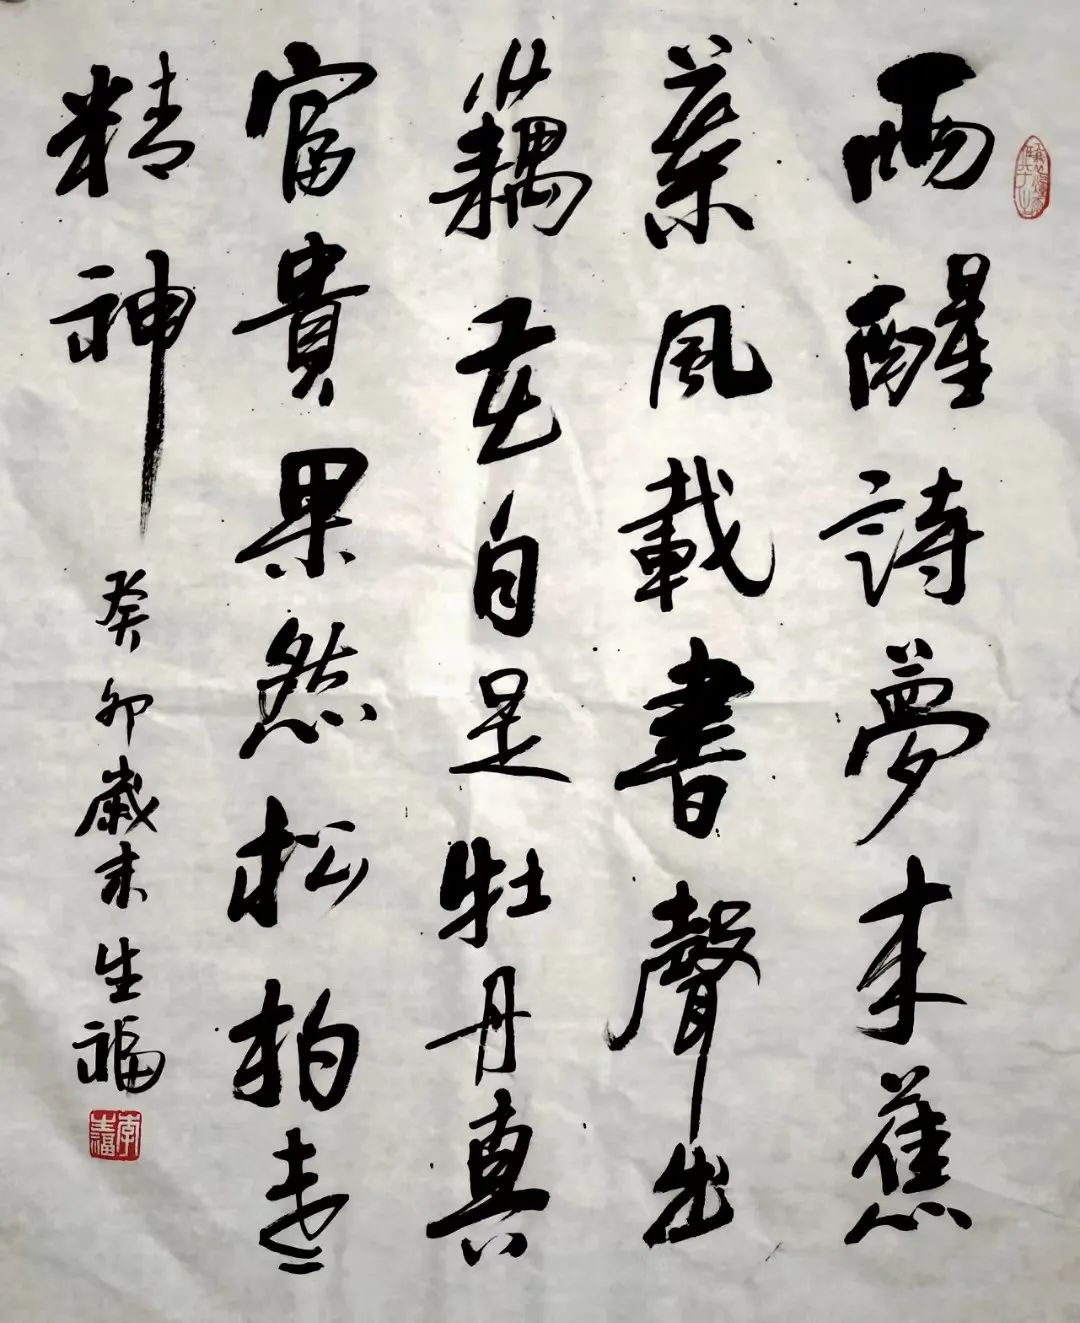 雨醒詩夢来蕉
葉風載書聲出
藕花自是牡丹真
富貴果然松柏老
精神
癸卯歲末生福
李生福